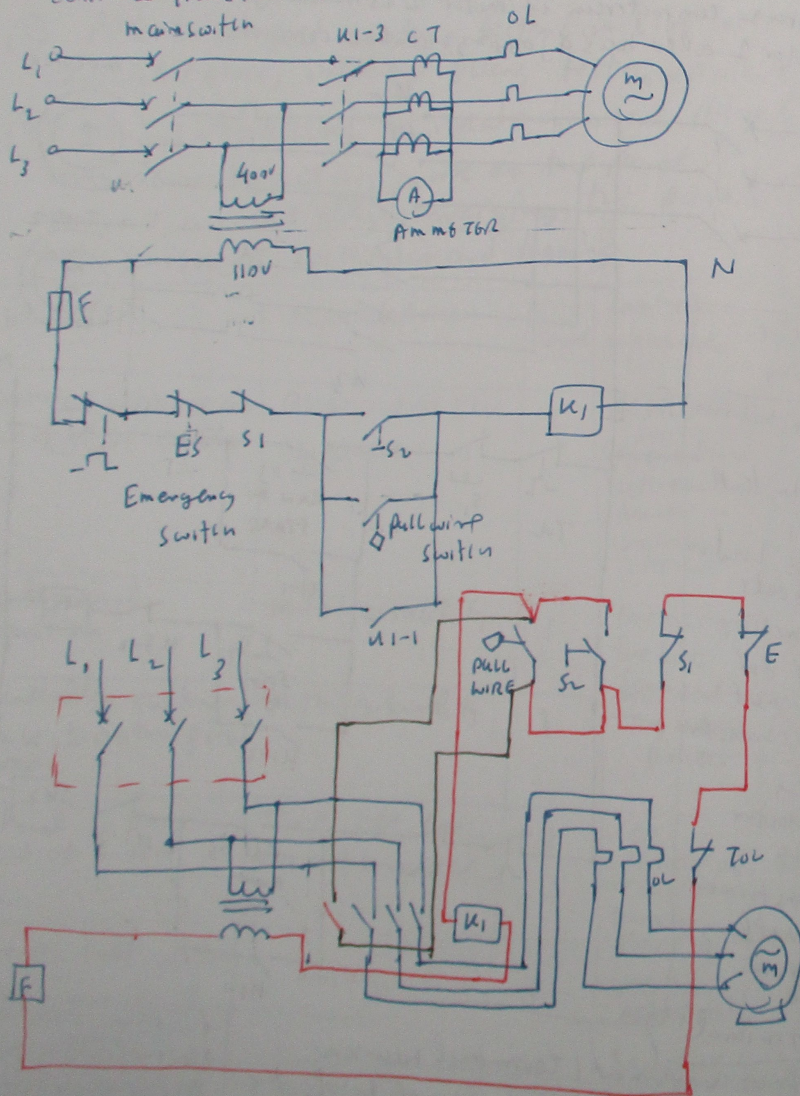 mainswitch K1-3 CT OL
L1
L2
L3
M
400V
A
AMMETER
110V
N
F
K1
ES
S1
S2
Emergency
switch
Pull wire
switch
K1-1
L1 L2 L3
PULL
WIRE
S2
S1
E
TOL
OL
K1
M
F